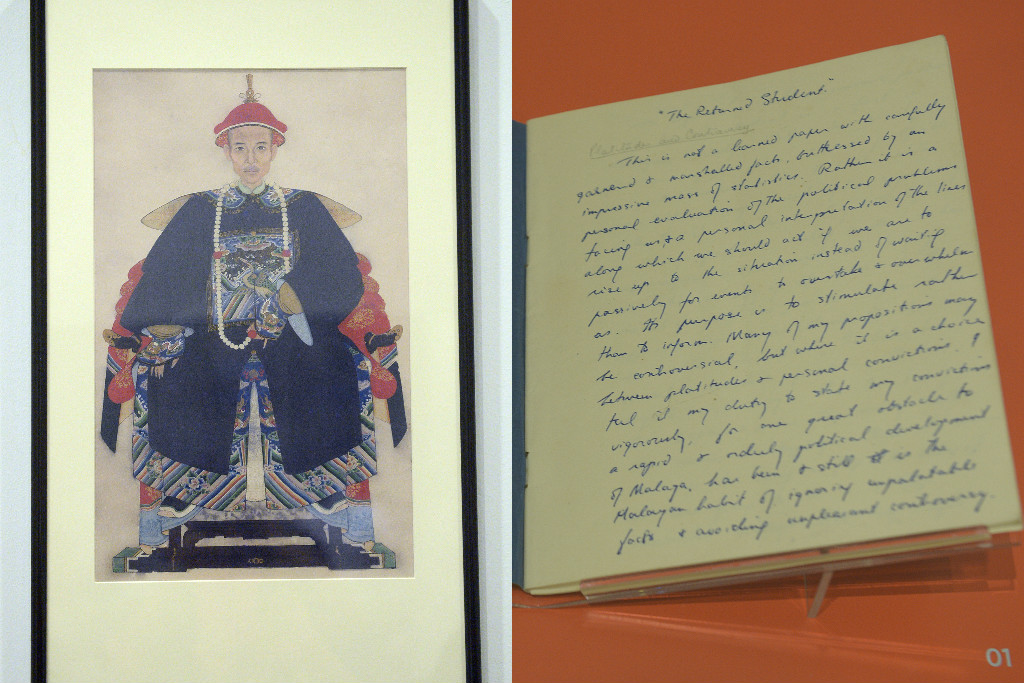 "The Returned Student."
Platitudes and Controversy
This is not a learned paper with carefully
garnered & marshalled facts, buttressed by an
impressive mass of statistics. Rather it is a
personal evaluation of the political problems
facing us, & a personal interpretation of the lines
along which we should act if we are to
rise up to the situation instead of waiting
passively for events to overtake & overwhelm
us. Its purpose is to stimulate rather
than to inform. Many of my propositions may
be controversial, but where it is a choice
between platitudes & personal convictions, I
feel it my duty to state my convictions
vigorously, for one great obstacle to
a rapid & orderly political development
of Malaya, has been & still is the
Malayan habit of ignoring unpalatable
facts & avoiding unpleasant controversy.
01